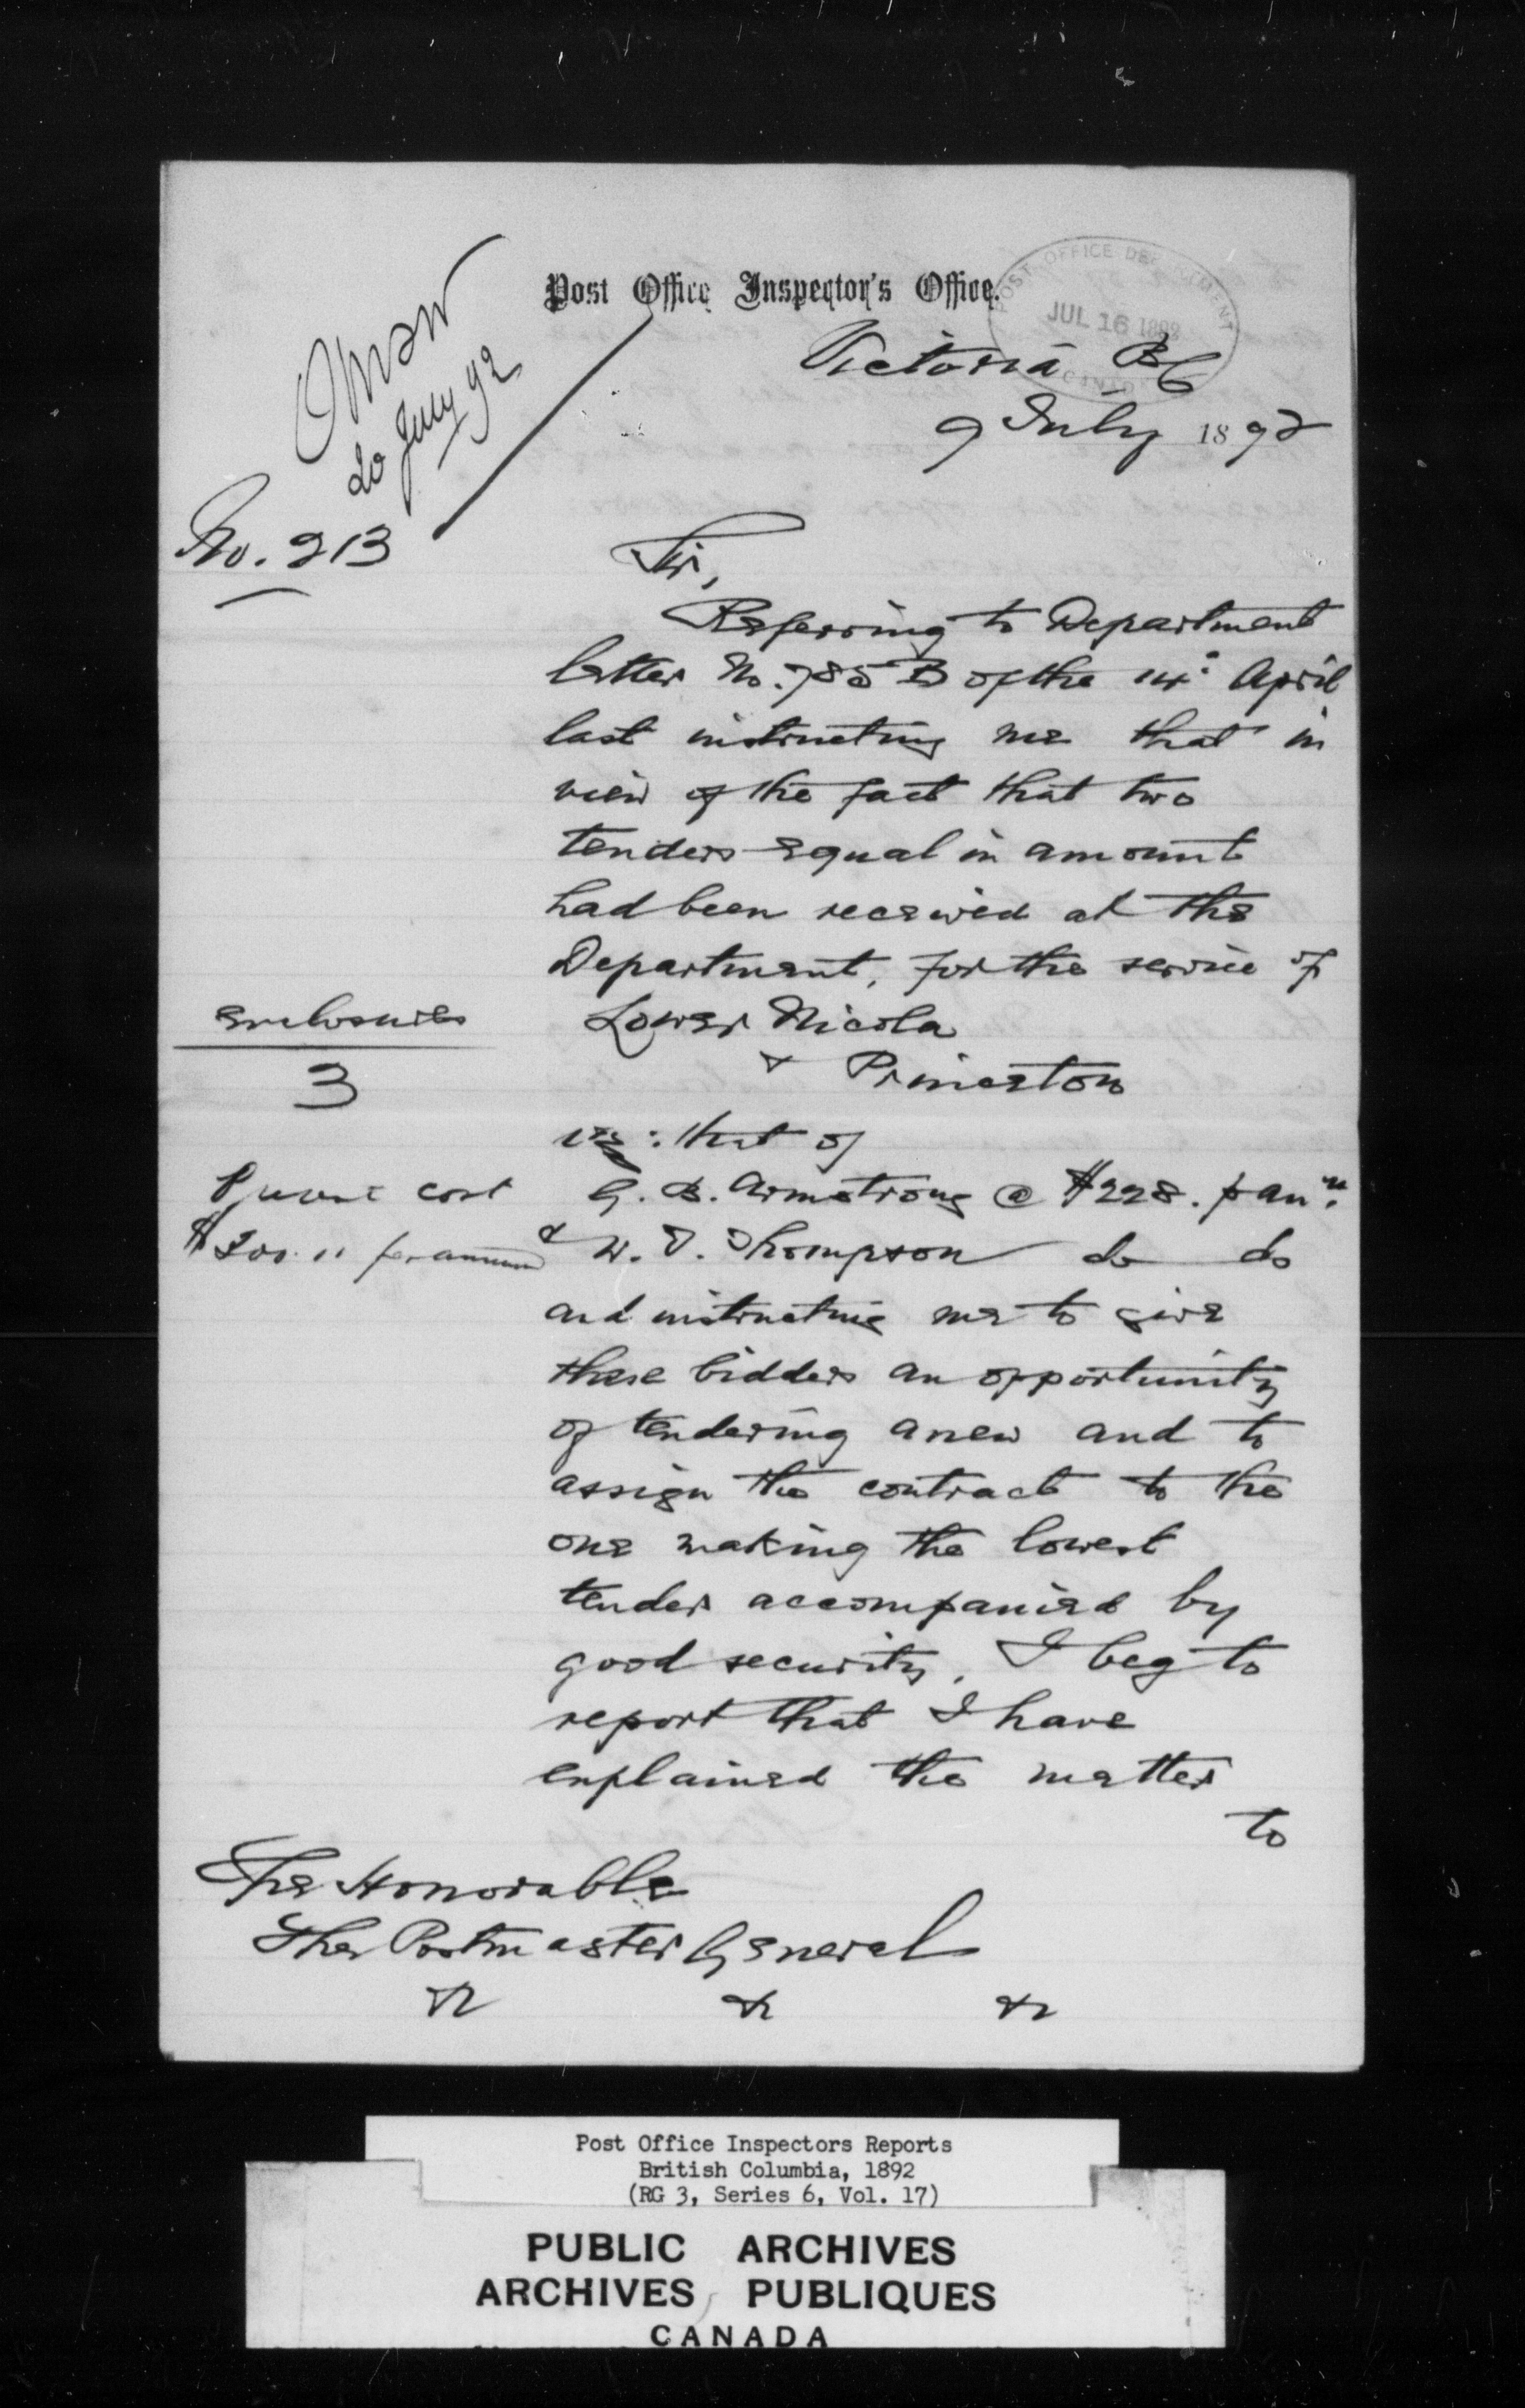 Post Office Inspector's Office.
POST OFFICE DEPARTMENT
JUL 16 1892
CANADA
Victoria BC
9 July 1892
20 July 92
No. 213
Sir,
Referring to Department
letter No. 785 B of the 14th April
last instructing me that in
view of the fact that two
tenders equal in amount
had been received at the
Department, for the service of
Enclosures
3
Lower Nicola
& Princeton
viz: that of
Present cost
$200.00 per annum
G. B. Armstrong @ $228. p ann.
& W. T. Thompson do do
and instructing me to give
these bidders an opportunity
of tendering anew and to
assign the contract to the
one making the lowest
tender accompanied by
good security, I beg to
report that I have
explained the matter
to
The Honorable
The Postmaster General
&c &c &c
Post Office Inspectors Reports
British Columbia, 1892
(RG 3, Series 6, Vol. 17)
PUBLIC ARCHIVES
ARCHIVES PUBLIQUES
CANADA